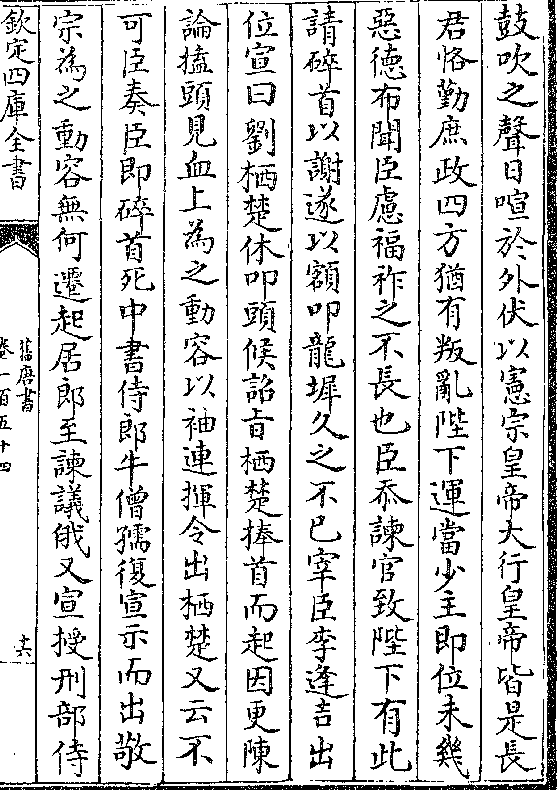 鼓吹之聲日喧於外伏以憲宗皇帝大行皇帝皆是長
君恪勤庶政四方猶有叛亂陛下運當少主即位未幾
惡德布聞臣慮福祚之不長也臣忝諫官致陛下有此
請碎首以謝遂以額叩龍墀久之不已宰臣李逢吉出
位宣曰劉栖楚休叩頭候詔㫖栖楚捧首而起因更陳
論搕頭見血上為之動容以袖連揮令出栖楚又云不
可臣奏臣即碎首死中書侍郎牛僧孺復宣示而出敬
宗為之動容無何遷起居郎至諫議俄又宣授刑部侍
欽定四庫全書
舊唐書
卷一百五十四
十六